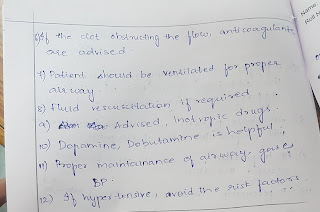 6) If the clot obstructing the flow, anticoagulant
are advised.
7) Patient should be ventilated for proper
airway.
8) Fluid rescuscitation if required.
9) Advised, Inotropic drugs.
10) Dopamine, Dobutamine is helpful
11) Proper maintainance of airway, gase
BP.
12) If hypertensive, avoid the risk factors
Name
Roll N